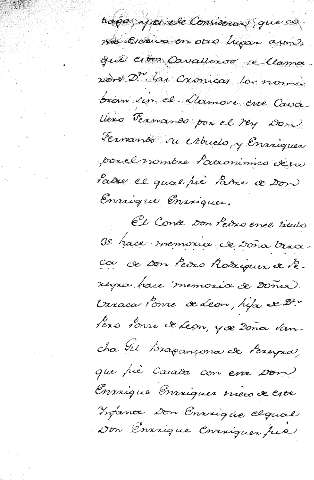 y es de Considerar, que co
en otro lugar, aun
que estos Cavalleros se llama
ron Dn. las Cronicas los nom
bran sin el. Llamose este Cava
llero Fernando por el Rey Don
Fernando su Abuelo, y Enrriquez
por el nombre Patronimico de su
Padre el qual fue Padre de Don
Enrrique Enrriquez.
El Conde Don Pedro en el titulo
hace memoria de Doña Urra
ca de Don Pedro Rodriguez de Pe
reyra hace memoria de Doña
Urraca Ponce de Leon, hija de Dn.
Pero Ponce de Leon, y de Doña San
cha Gil Bragançona de
que fue Casada con este Don
Enrrique Enrriquez nieto de este
Infante Don Enrrique el qual
Don Enrrique Enrriquez fue